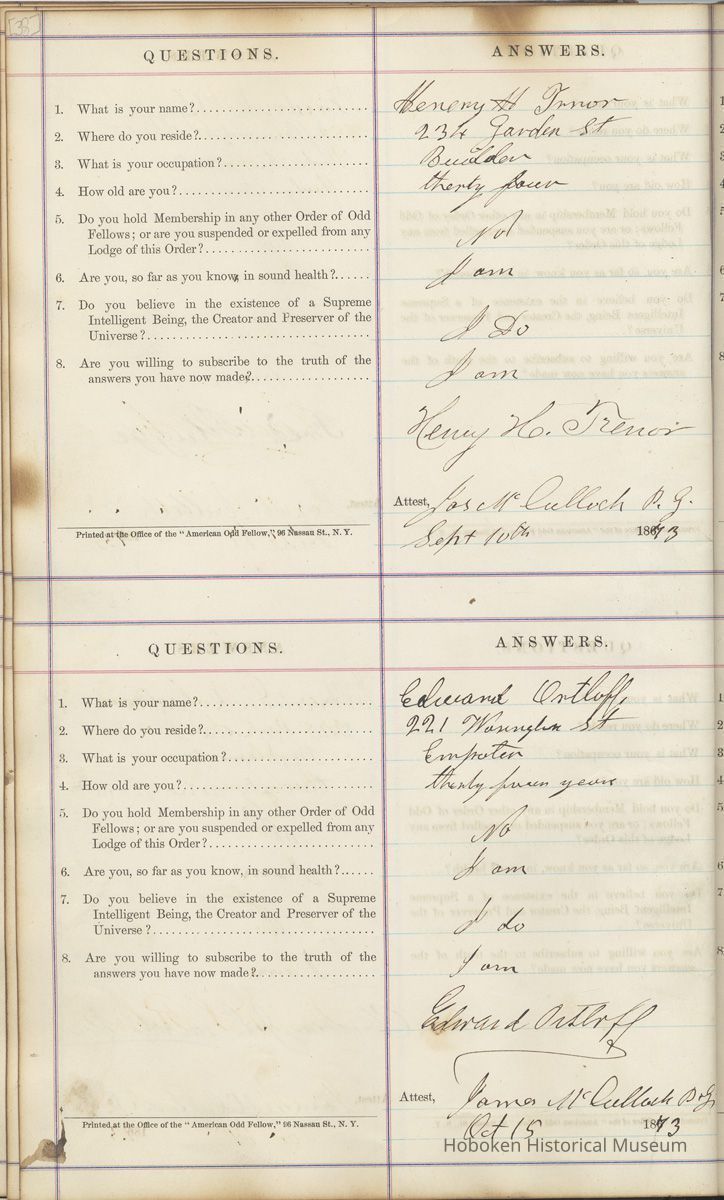 [38]
QUESTIONS.
ANSWERS.
1. What is your name?
Henery H Trnor
2. Where do you reside?
234 Garden St
3. What is your occupation?
Builder
4. How old are you?
therty four
5. Do you hold Membership in any other Order of Odd
Fellows; or are you suspended or expelled from any
Lodge of this Order?
No
6. Are you, so far as you know, in sound health?
I am
7. Do you believe in the existence of a Supreme
Intelligent Being, the Creator and Preserver of the
Universe?
I Do
8. Are you willing to subscribe to the truth of the
answers you have now made?
I am
Henry H. Trenor
Attest, Jas McCulloch P. G.
Printed at the Office of the "American Odd Fellow," 96 Nassau St., N. Y.
Sept 10th 1873
QUESTIONS.
ANSWERS.
1. What is your name?
Edward Ortloff,
2. Where do you reside?
221 St
3. What is your occupation?
4. How old are you?
therty four years
5. Do you hold Membership in any other Order of Odd
Fellows; or are you suspended or expelled from any
Lodge of this Order?
No
6. Are you, so far as you know, in sound health?
I am
7. Do you believe in the existence of a Supreme
Intelligent Being, the Creator and Preserver of the
Universe?
I do
8. Are you willing to subscribe to the truth of the
answers you have now made?
I am
Edward Ortloff
Attest, James McCulloch P. G.
Printed at the Office of the "American Odd Fellow," 96 Nassau St., N. Y.
Oct 15 1873
Hoboken Historical Museum